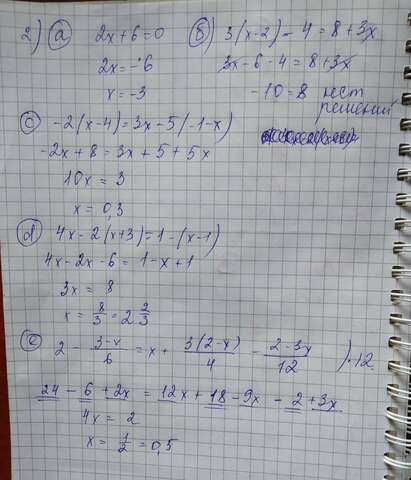 2) a 2x+6=0 б) 3(x-2) - 4 = 8 + 3x
2x = -6 3x - 6 - 4 = 8 + 3x
x = -3 -10 = 8 нет
решений
c -2(x-4) = 3x - 5(-1-x)
-2x + 8 = 3x + 5 + 5x
10x = 3
x = 0,3
d 4x - 2(x+3) = 1 - (x-1)
4x - 2x - 6 = 1 - x + 1
3x = 8
x = 8/3 = 2 2/3
e 2 - (3-x)/6 = x + 3(2-x)/4 - (2-3x)/12 ) · 12
24 - 6 + 2x = 12x + 18 - 9x - 2 + 3x
4x = 2
x = 1/2 = 0,5